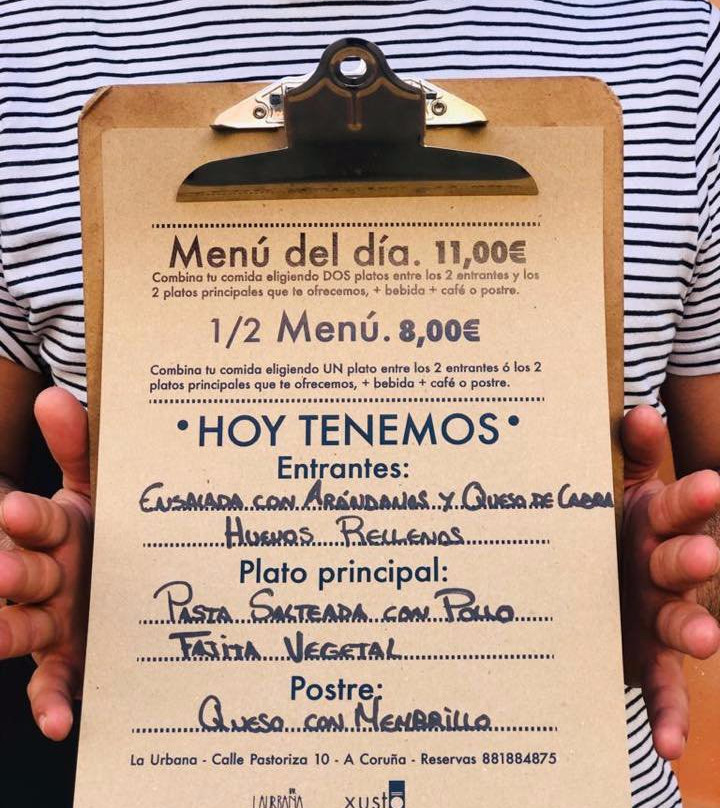 Menú del día. 11,00€
Combina tu comida eligiendo DOS platos entre los 2 entrantes y los
2 platos principales que te ofrecemos, + bebida + café o postre.
1/2 Menú. 8,00€
Combina tu comida eligiendo UN plato entre los 2 entrantes ó los 2
platos principales que te ofrecemos, + bebida + café o postre.
• HOY TENEMOS •
Entrantes:
ENSALADA CON ARÁNDANOS Y QUESO DE CABRA
HUEVOS RELLENOS
Plato principal:
PASTA SALTEADA CON POLLO
FAJITA VEGETAL
Postre:
QUESO CON MEMBRILLO
La Urbana - Calle Pastoriza 10 - A Coruña - Reservas 881884875
LAURBANA xusto